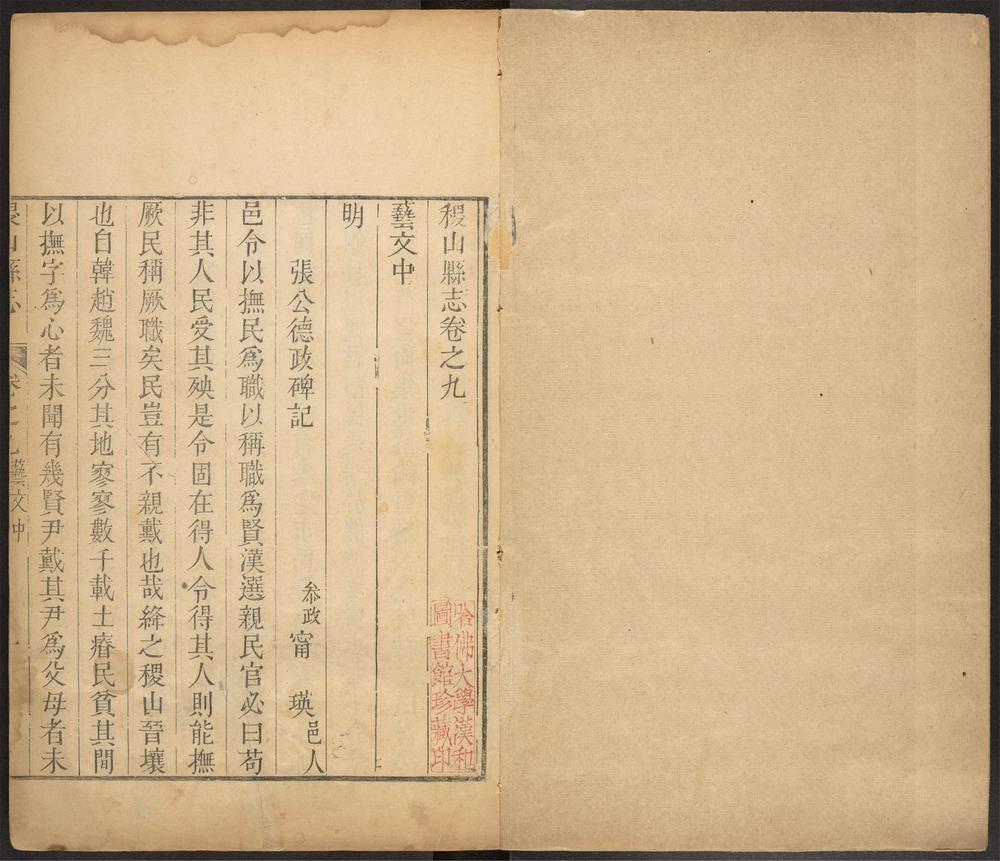 稷山縣志卷之九
藝文中
明
張公德政碑記
叅政甯 瑛邑人
邑令以撫民爲職以稱職爲賢漢選親民官必曰苟
非其人民受其殃是令固在得人令得其人則能撫
厥民稱厥職矣民豈有不親戴也哉絳之稷山晉壤
也自韓趙魏三分其地寥寥數千載土瘠民貧其間
以撫字爲心者未聞有幾賢尹戴其尹爲父母者未
稷山縣志 卷之九藝文中 一
哈佛大學漢和
圖書館珍藏印